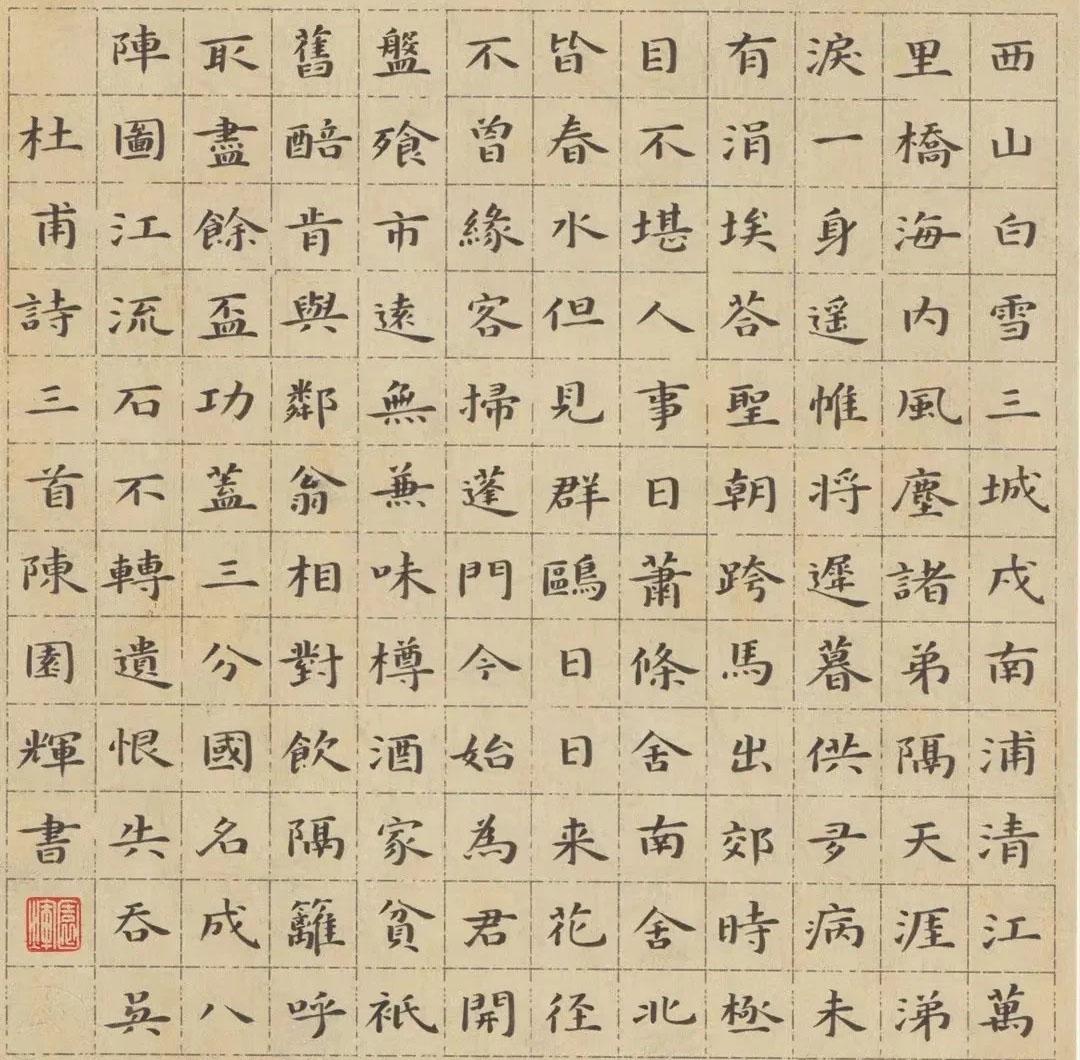 西山白雪三城戍南浦清江萬
里橋海内風塵諸弟隔天涯涕
淚一身遥惟将遲暮供多病未
有涓埃荅聖朝跨馬出郊時極
目不堪人事日蕭條舍南舍北
皆春水但見群鷗日日来花径
不曾緣客掃蓬門今始為君開
盤飧市遠無兼味樽酒家貧衹
舊醅肯與鄰翁相對飲隔籬呼
取盡餘盃功蓋三分國名成八
陣圖江流石不轉遺恨失吞吳
杜甫詩三首陳園輝書
園輝